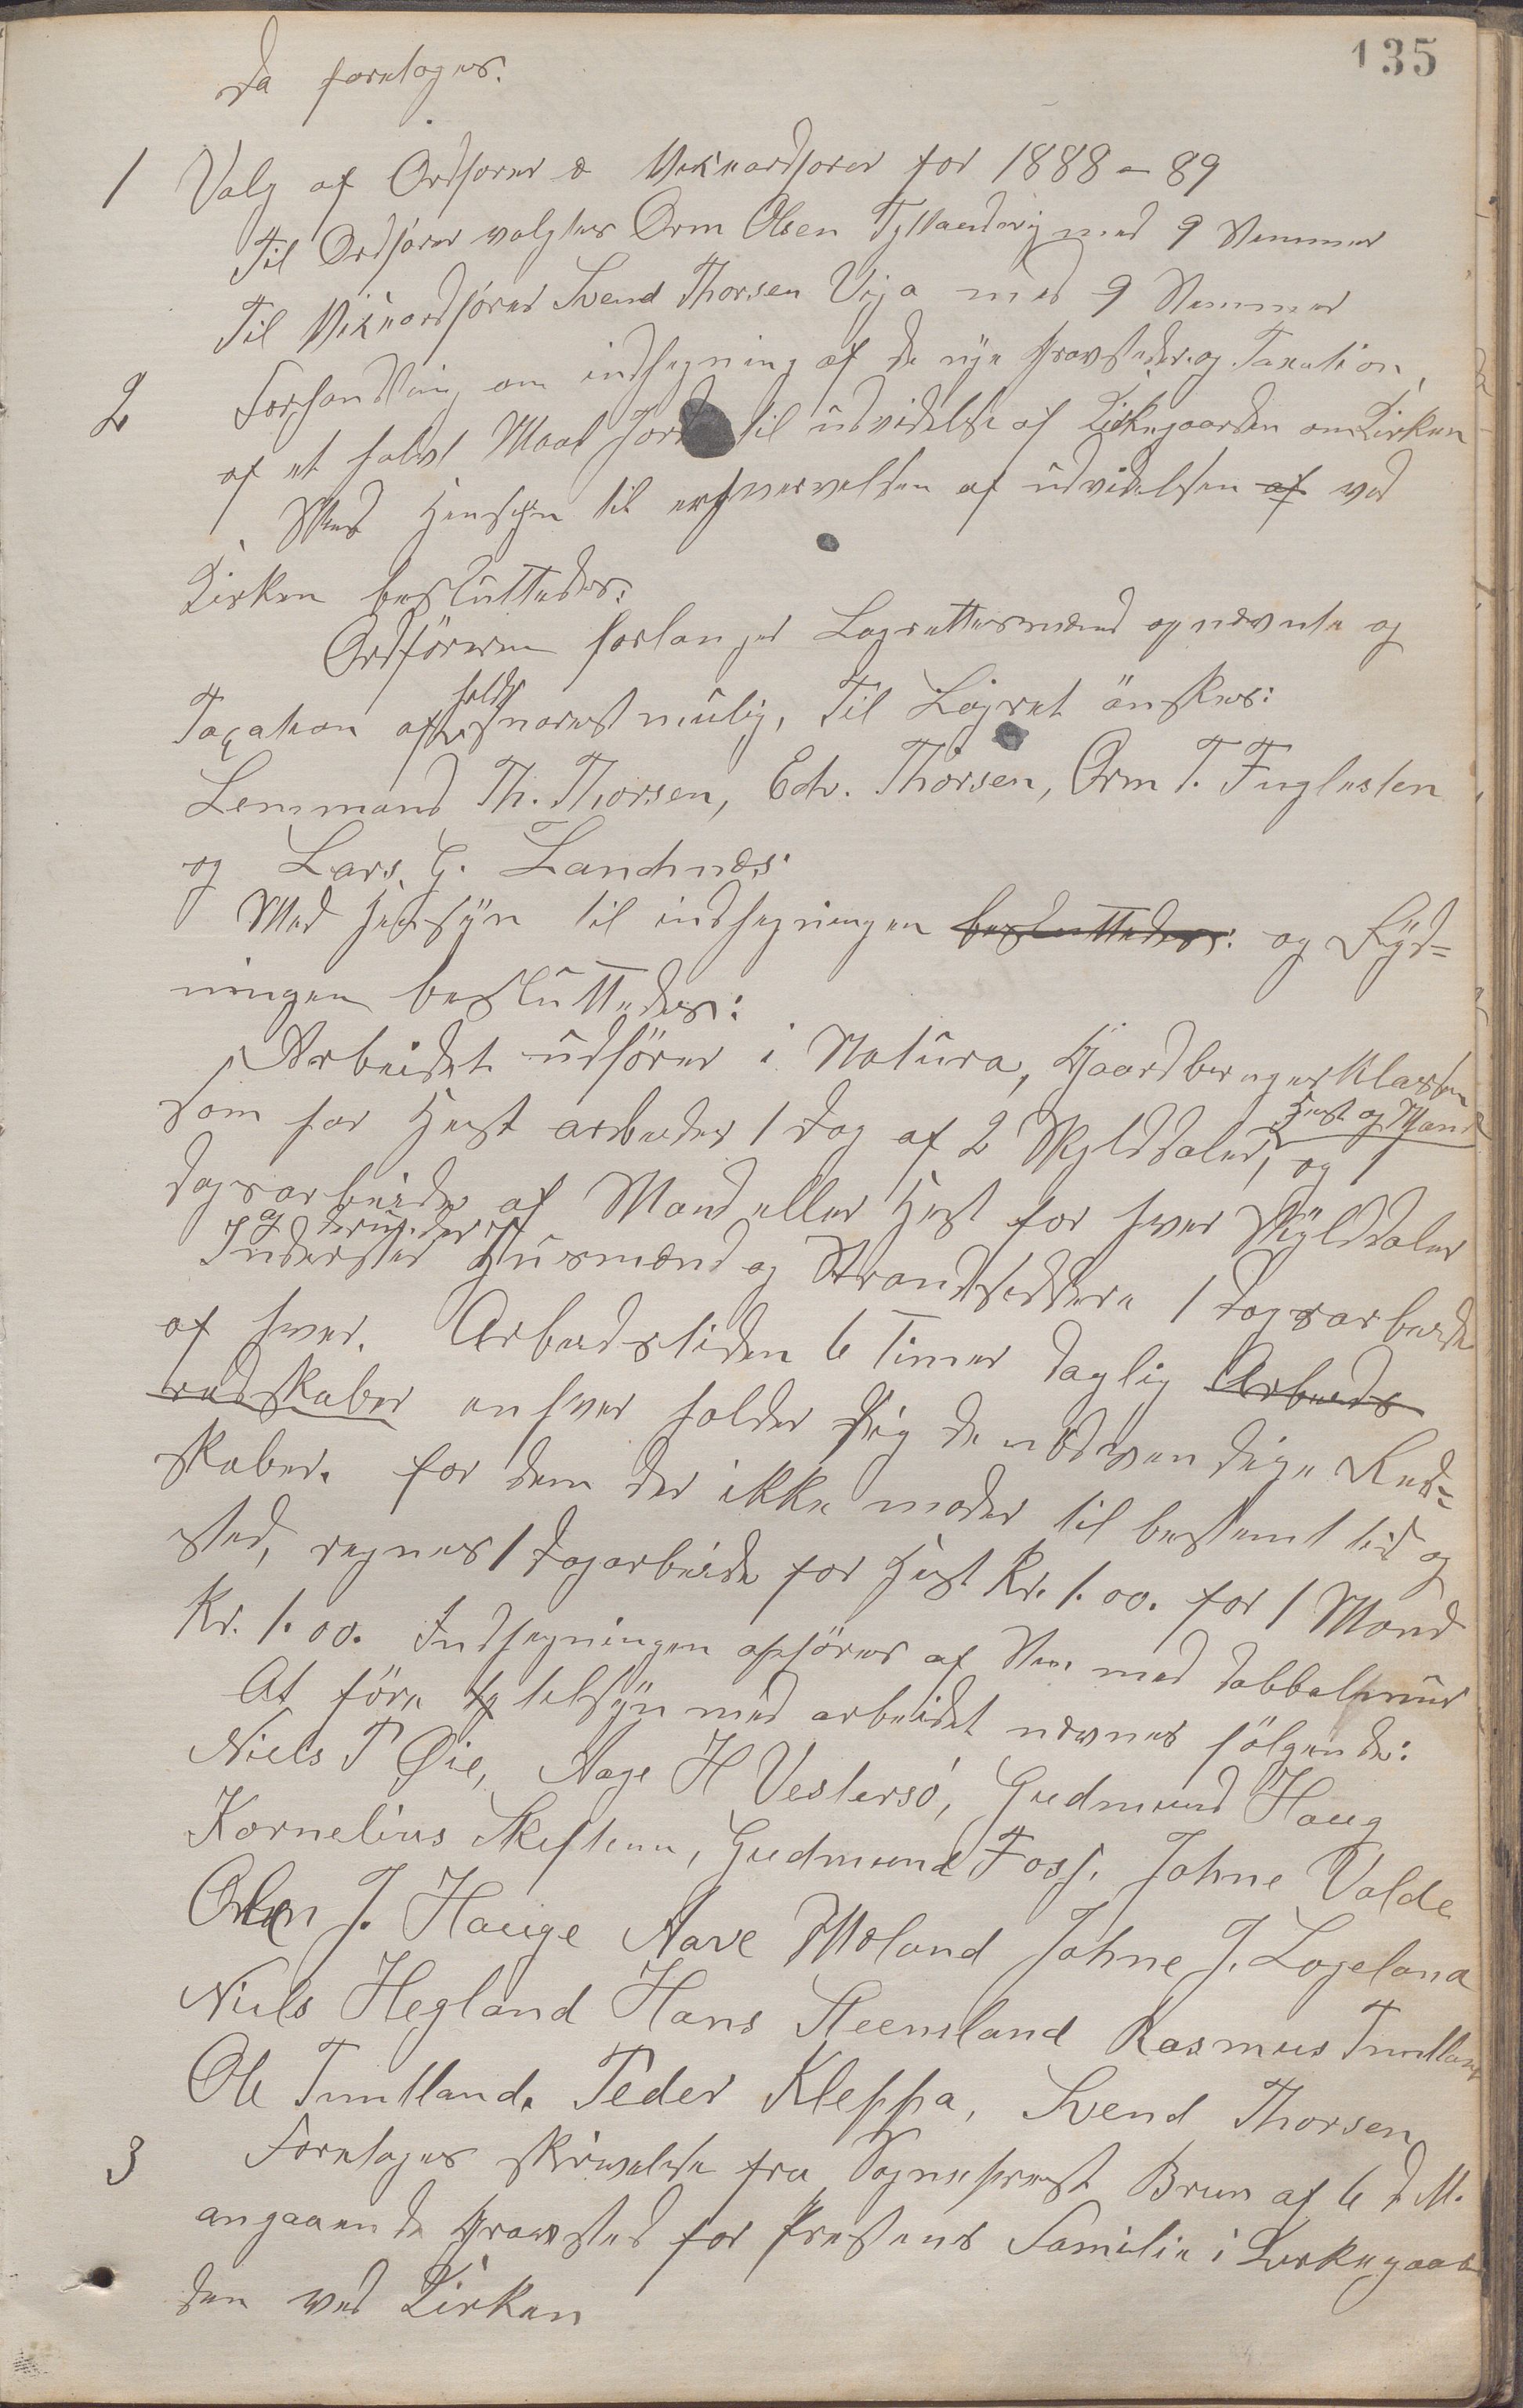 135
Da foretoges:
1 Valg af Ordförer & Viseordförer for 1888-89
Til Ordförer valgtes Orm Olsen med 9 Stemmer
Til Viseordförer Svend Thorsen Viga med 9 Stemmer
2 Forhandling om indhegning af de nye Gravsteder og Taxation
af et halvt Maal Jord til udvidelse af Kirkegaarden om Kirken
Med Hensyn til erhvervelsen af udvidelsen af ved
Kirken besluttedes:
Ordföreren forlanger Lagrettesmænd opnævnte og
Taxation afholdt snarest mulig, Til Lagret önskes:
Lensmand Th. Thorsen, Edv. Thorsen, Orm T. Fuglesten
og Lars G. Landsnes.
Med Hensyn til indhegningen besluttedes: og Ryd-
ningen besluttedes:
Arbeidet udföres i Natura, Gaardbruger Klassen
som har Hest arbeider 1 Dag af 2 Skylddaler, Hest og Mand og 1
dagsarbeide af Mand eller Hest for hver Skylddaler
Inderster Husmænd og Strandsiddere 1 dagsarbeide
af hver. Arbeidstiden 6 Timer daglig Arbeids
redskaber enhver holder sig de nödvendige Red-
skaber. for dem der ikke moder til bestemt tid og
sted, regnes 1 Dagarbeide for Hest Kr. 1.00. for 1 Mand
Kr. 1.00. Indhegningen opföres af Sten med dobbeltmur
At före tilsyn med arbeidet nævnes fölgende:
Niels T Øie, Aage H Vestersö, Gudmund Haug
Kornelius Skiftenn, Gudmund Foss. Johne Valde
Orm J. Hauge Aave Moland Johne J. Logeland
Niels Hegland Hans Steensland Rasmus Tuntland
Ole Tuntland. Peder Kleppa, Svend Thorsen
3 Foretoges skrivelse fra Sogneprest Brun af 6 d.M.
angaaende Gravsted for Prestens Familie i Kirkegaar
den ved Kirken